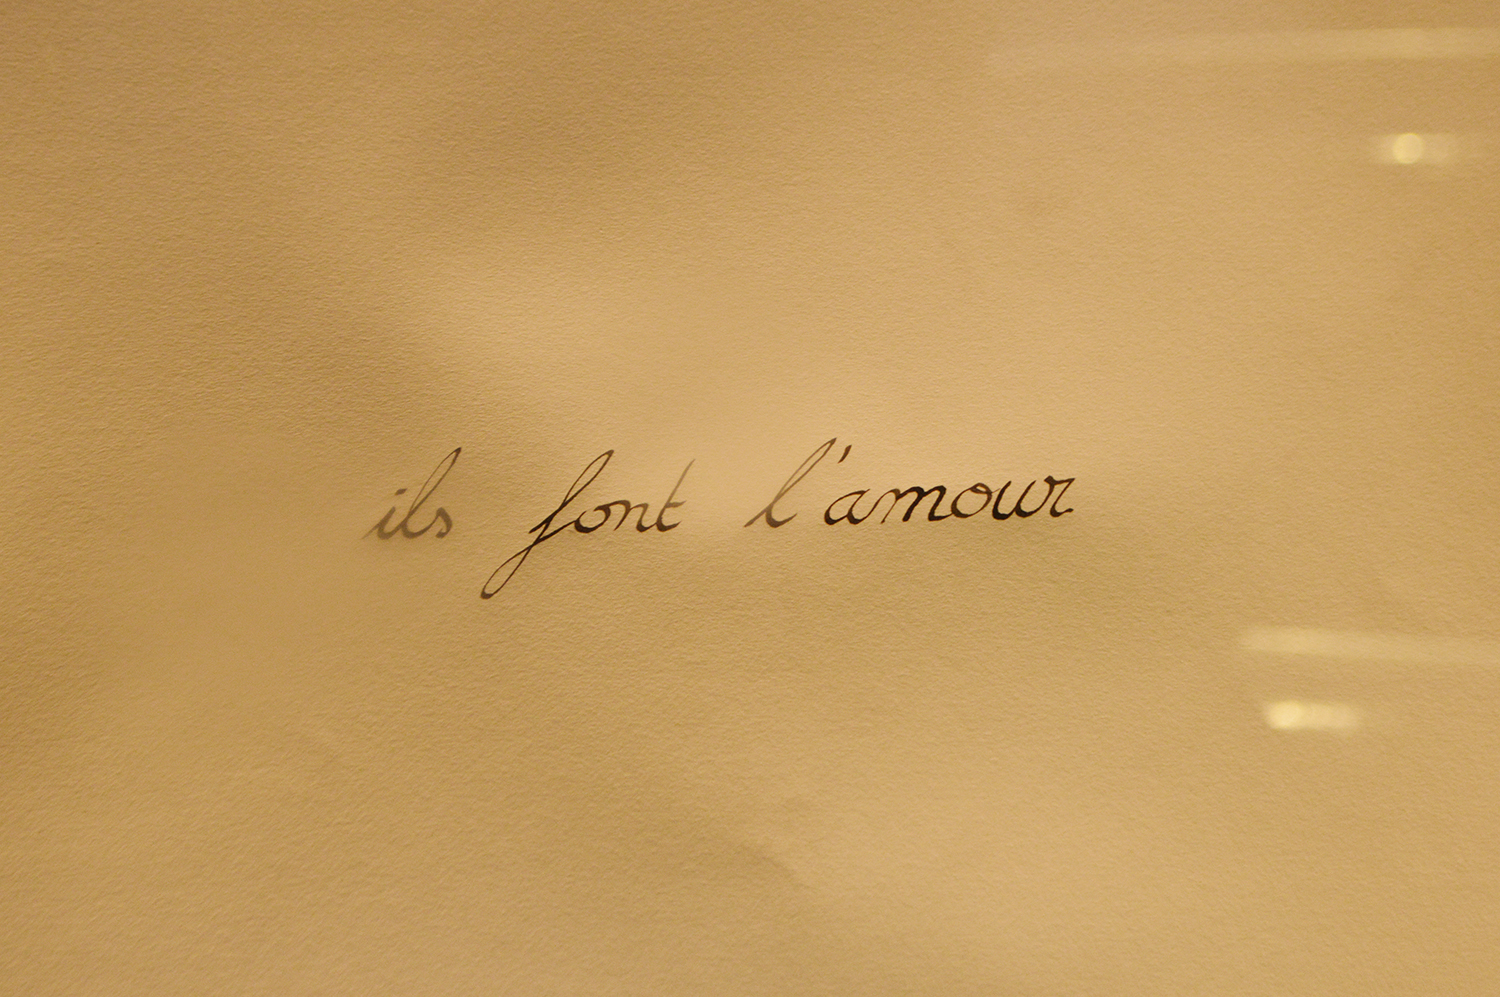 ils font l'amour